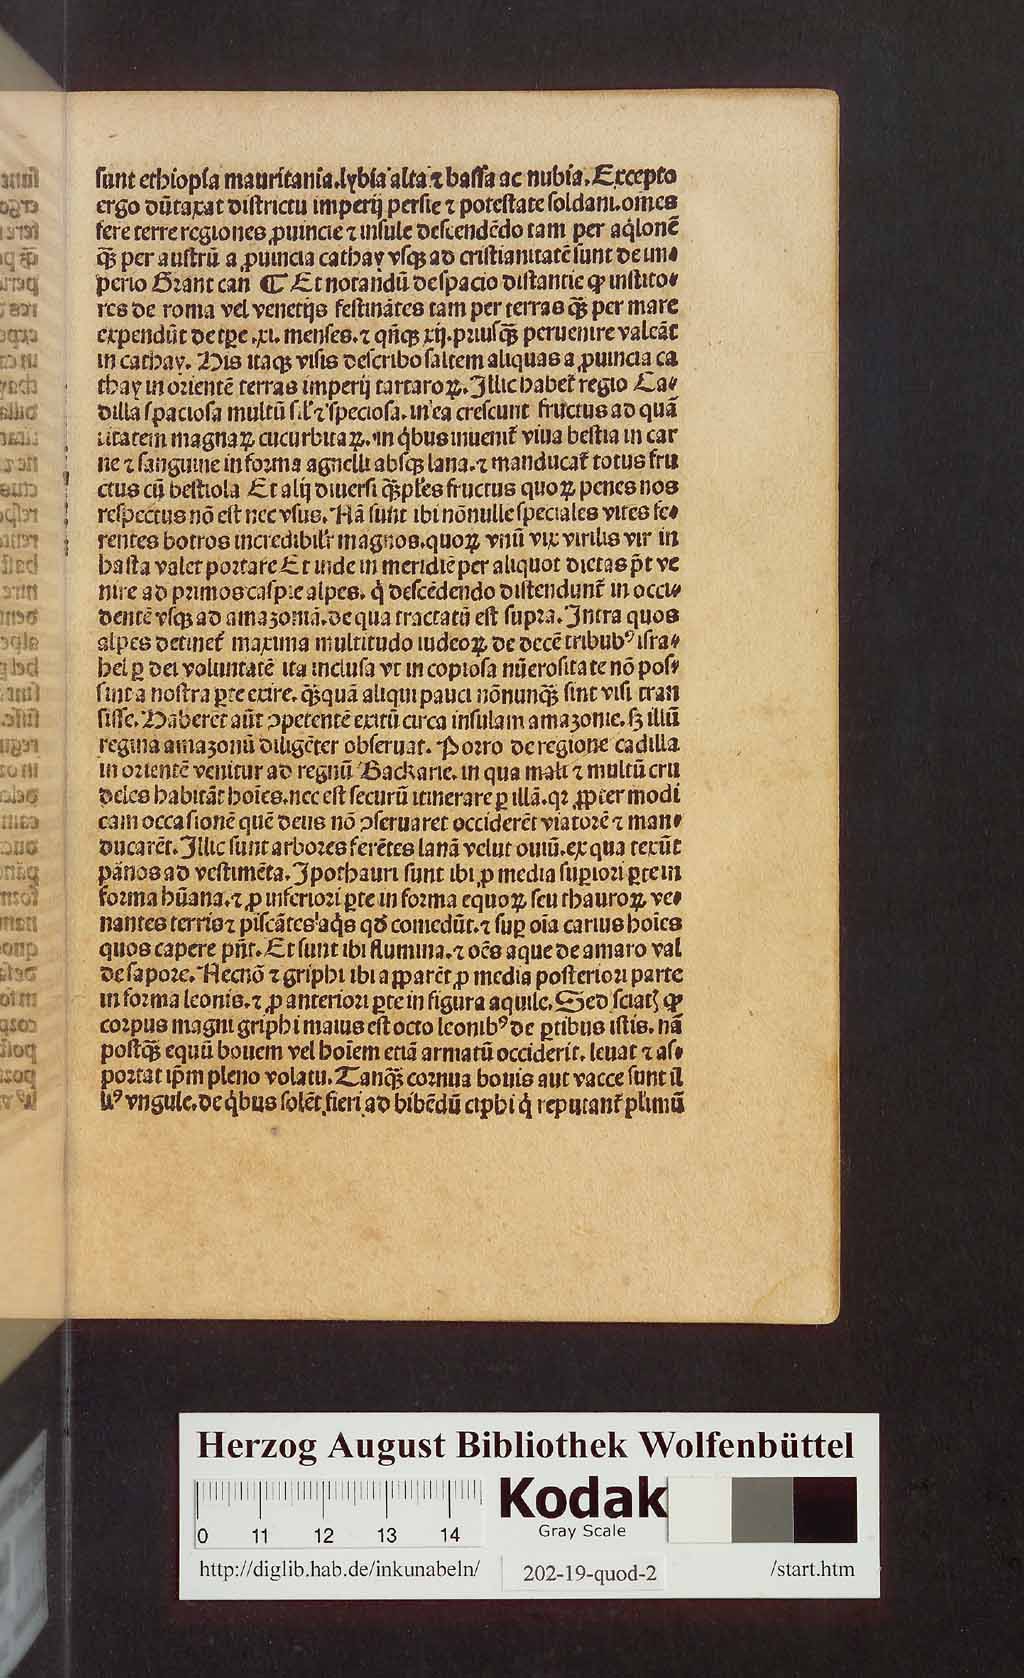 sunt ethiopia mauritania.lybia alta ⁊ bassa ac nubia. Excepto
ergo dūtaxat districtu imperij persie ⁊ potestate soldani.omēs
fere terre regiones ꝓuincie ⁊ insule descendēdo tam per aq̇lonē
q̄ꝫ per austrū a ꝓuincia cathay vsqꝫ ad cristianitatē sunt de im⸗
perio Grant can ¶ Et notandū de spacio distantie ꝙ instito⸗
res de roma vel venetijs festinātes tam per terras q̄ꝫ per mare
expendūt de tꝑe .xi. menses. ⁊ qn̄qꝫ xij.priusq̄ꝫ peruenire valeāt
in cathay. His itaqꝫ visis describo saltem aliquas a ꝓuincia ca
thay in orientē terras imperij tartaroꝝ. Illic habet᷑ regio Ca⸗
dilla spaciosa multū s.l' ⁊ speciosa. in ea crescunt fructus ad quā
titatem magnaꝝ cucurbitaꝝ. in q̇bus inuenit᷑ viua bestia in car
ne ⁊ sanguine in forma agnelli absqꝫ lana.⁊ manducat᷑ totus fru
ctus cū bestiola Et alij diuersi q̄ꝫpl'es fructus quoꝝ penes nos
respectus nō est nec vsus. Nā sunt ibi nōnulle speciales vites fe⸗
rentes botros incredibilr̄ magnos.quoꝝ vnū vix virilis vir in
hasta valet portare Et inde in meridiē per aliquot dietas p̄t ve
nire ad primos caspie alpes. q̇ descēdendo distendunt᷑ in occi⸗
dentē vsqꝫ ad amazoniā.de qua tractatū est supra. Intra quos
alpes detinet᷑ maxima multitudo iudeoꝝ de decē tribubꝰ isra⸗
hel ꝑ dei voluntatē ita inclusa vt in copiosa nūerositate nō pos⸗
sint a nostra ꝑte exire. q̄ꝫquā aliqui pauci nōnunq̄ꝫ sint visi tran
sisse. Haberet aūt ꝯpetentē exitū circa insulam amazonie. sꝫ illū
regina amazonū diligēter obseruat. Porro de regione cadilla
in orientē venitur ad regnū Backarie. in qua mali ⁊ multū cru
deles habitāt hoīes.nec est securū itinerare ꝑ illā.qꝛ ꝓpter modi
cam occasionē quē deus nō ꝯseruaret occiderēt viatorē ⁊ man⸗
ducarēt. Illic sunt arbores ferētes lanā velut ouiū.ex qua texūt
pānos ad vestimēta. Ipothauri sunt ibi ꝓ media suꝑiori ꝑte in
forma hūana.⁊ ꝓ inferiori ꝑte in forma equoꝝ seu thauroꝝ ve⸗
nantes terris ⁊ piscātes aq̇s qđ comedūt.⁊ suꝑ oīa carius hoīes
quos capere pn̄t. Et sunt ibi flumina.⁊ oēs aque de amaro val
de sapore. Necnō ⁊ griphi ibi apparēt ꝓ media posteriori parte
in forma leonis.⁊ ꝓ anteriori ꝑte in figura aquile. Sed sciatꝭ ꝙ
corpus magni griphi maius est octo leonibꝰ de ꝑtibus istis. nā
postq̄ꝫ equū bouem vel hoīem etiā armatū occiderit. leuat ⁊ as⸗
portat ip̄m pleno volatu. Tanq̄ꝫ cornua bouis aut vacce sunt il
liꝰ vngule.de q̇bus solēt fieri ad bibēdū ciphi q̇ reputant᷑ pl'imū
Herzog August Bibliothek Wolfenbüttel
0 11 12 13 14
Kodak
Gray Scale
http://diglib.hab.de/inkunabeln/ 202-19-quod-2 /start.htm